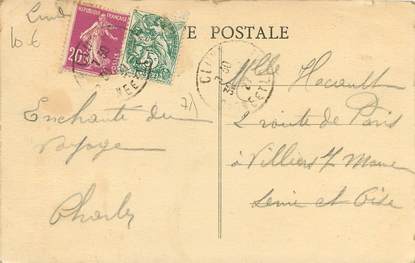 10 €
RÉPUBLIQUE FRANÇAISE
20c
E POSTALE
Enchanté du
Voyage
Charles
Mlle Hocault
2 route de Paris
à Villiers s/ Marne
Seine et Oise